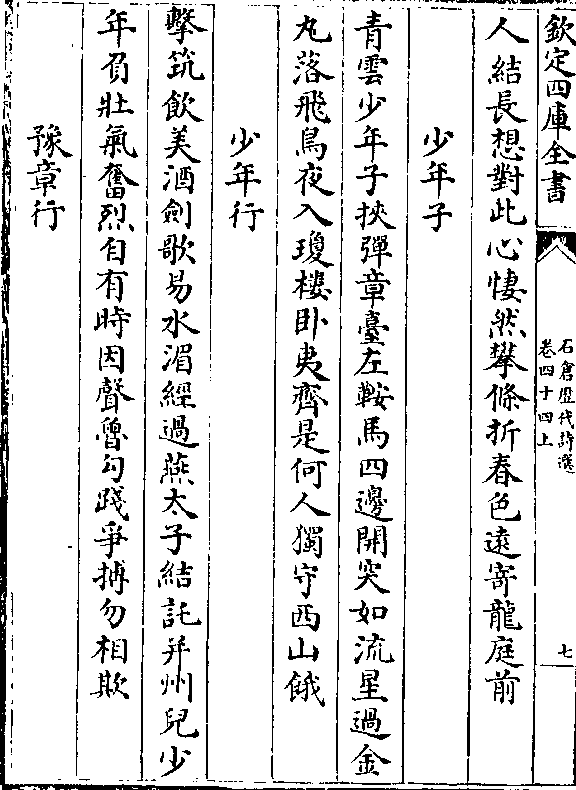 欽定四庫全書
石倉歷代詩選
卷四十四上
七
人結長想對此心悽然攀條折春色遠寄龍庭前
少年子
青雲少年子挾彈章臺左鞍馬四邊開突如流星過金
丸落飛鳥夜入瓊樓卧夷齊是何人獨守西山餓
少年行
擊筑飲美酒劍歌易水湄經過燕太子結託并州兒少
年負壯氣奮烈自有時因聲魯勾踐爭搏勿相欺
豫章行